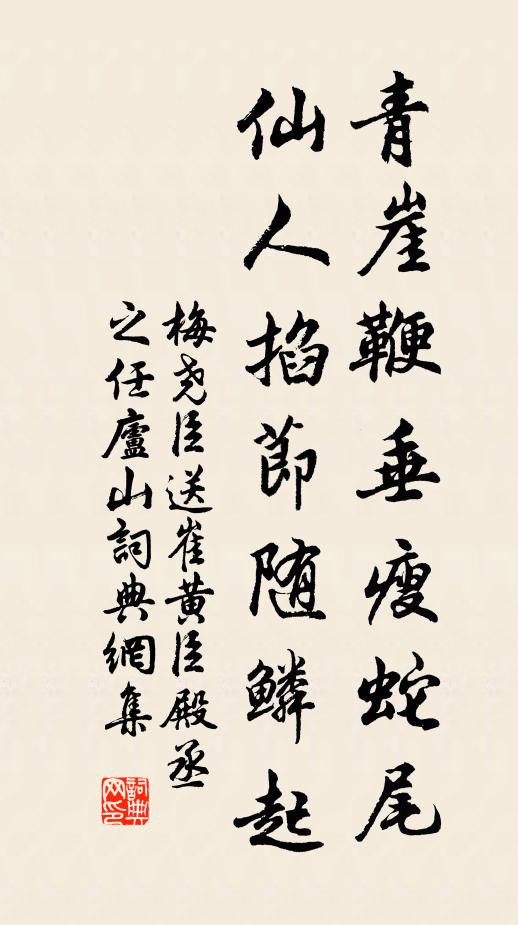 青崖鞭垂瘦蛇尾
仙人掐節随鱗起
梅尧臣送崔黄臣殿丞
之任廬山詞典網集
詞典
网印